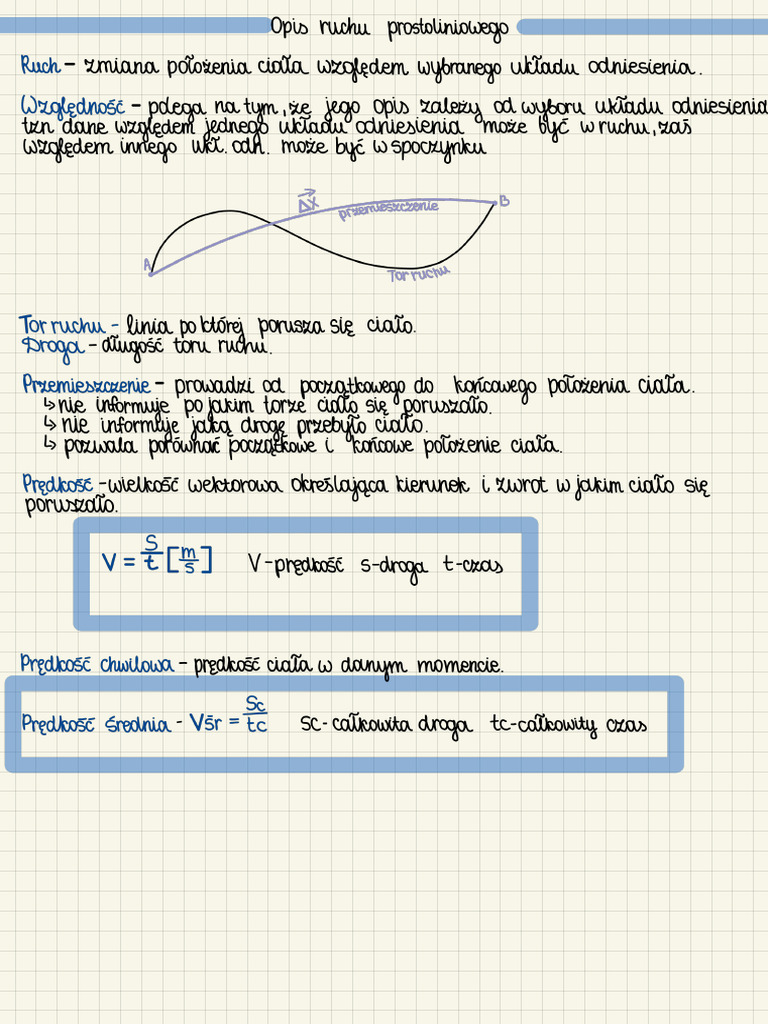 Opis ruchu prostoliniowego
Ruch - zmiana położenia ciała względem wybranego układu odniesienia.
Względność - polega na tym, że jego opis zależy od wyboru układu odniesienia
tzn dane względem jednego układu odniesienia może być w ruchu, zaś
względem innego ukł. odn. może być w spoczynku
Δx
przemieszczenie
B
A
Tor ruchu
Tor ruchu - linia po której porusza się ciało.
Droga - długość toru ruchu.
Przemieszczenie - prowadzi od początkowego do końcowego położenia ciała.
↳ nie informuje po jakim torze ciało się poruszało.
↳ nie informuje jaką drogę przebyło ciało.
↳ pozwala porównać początkowe i końcowe położenie ciała.
Prędkość - wielkość wektorowa określająca kierunek i zwrot w jakim ciało się
poruszało.
V = s/t [m/s] V - prędkość s - droga t - czas
Prędkość chwilowa - prędkość ciała w danym momencie.
Prędkość średnia - Vśr = Sc/tc Sc - całkowita droga tc - całkowity czas